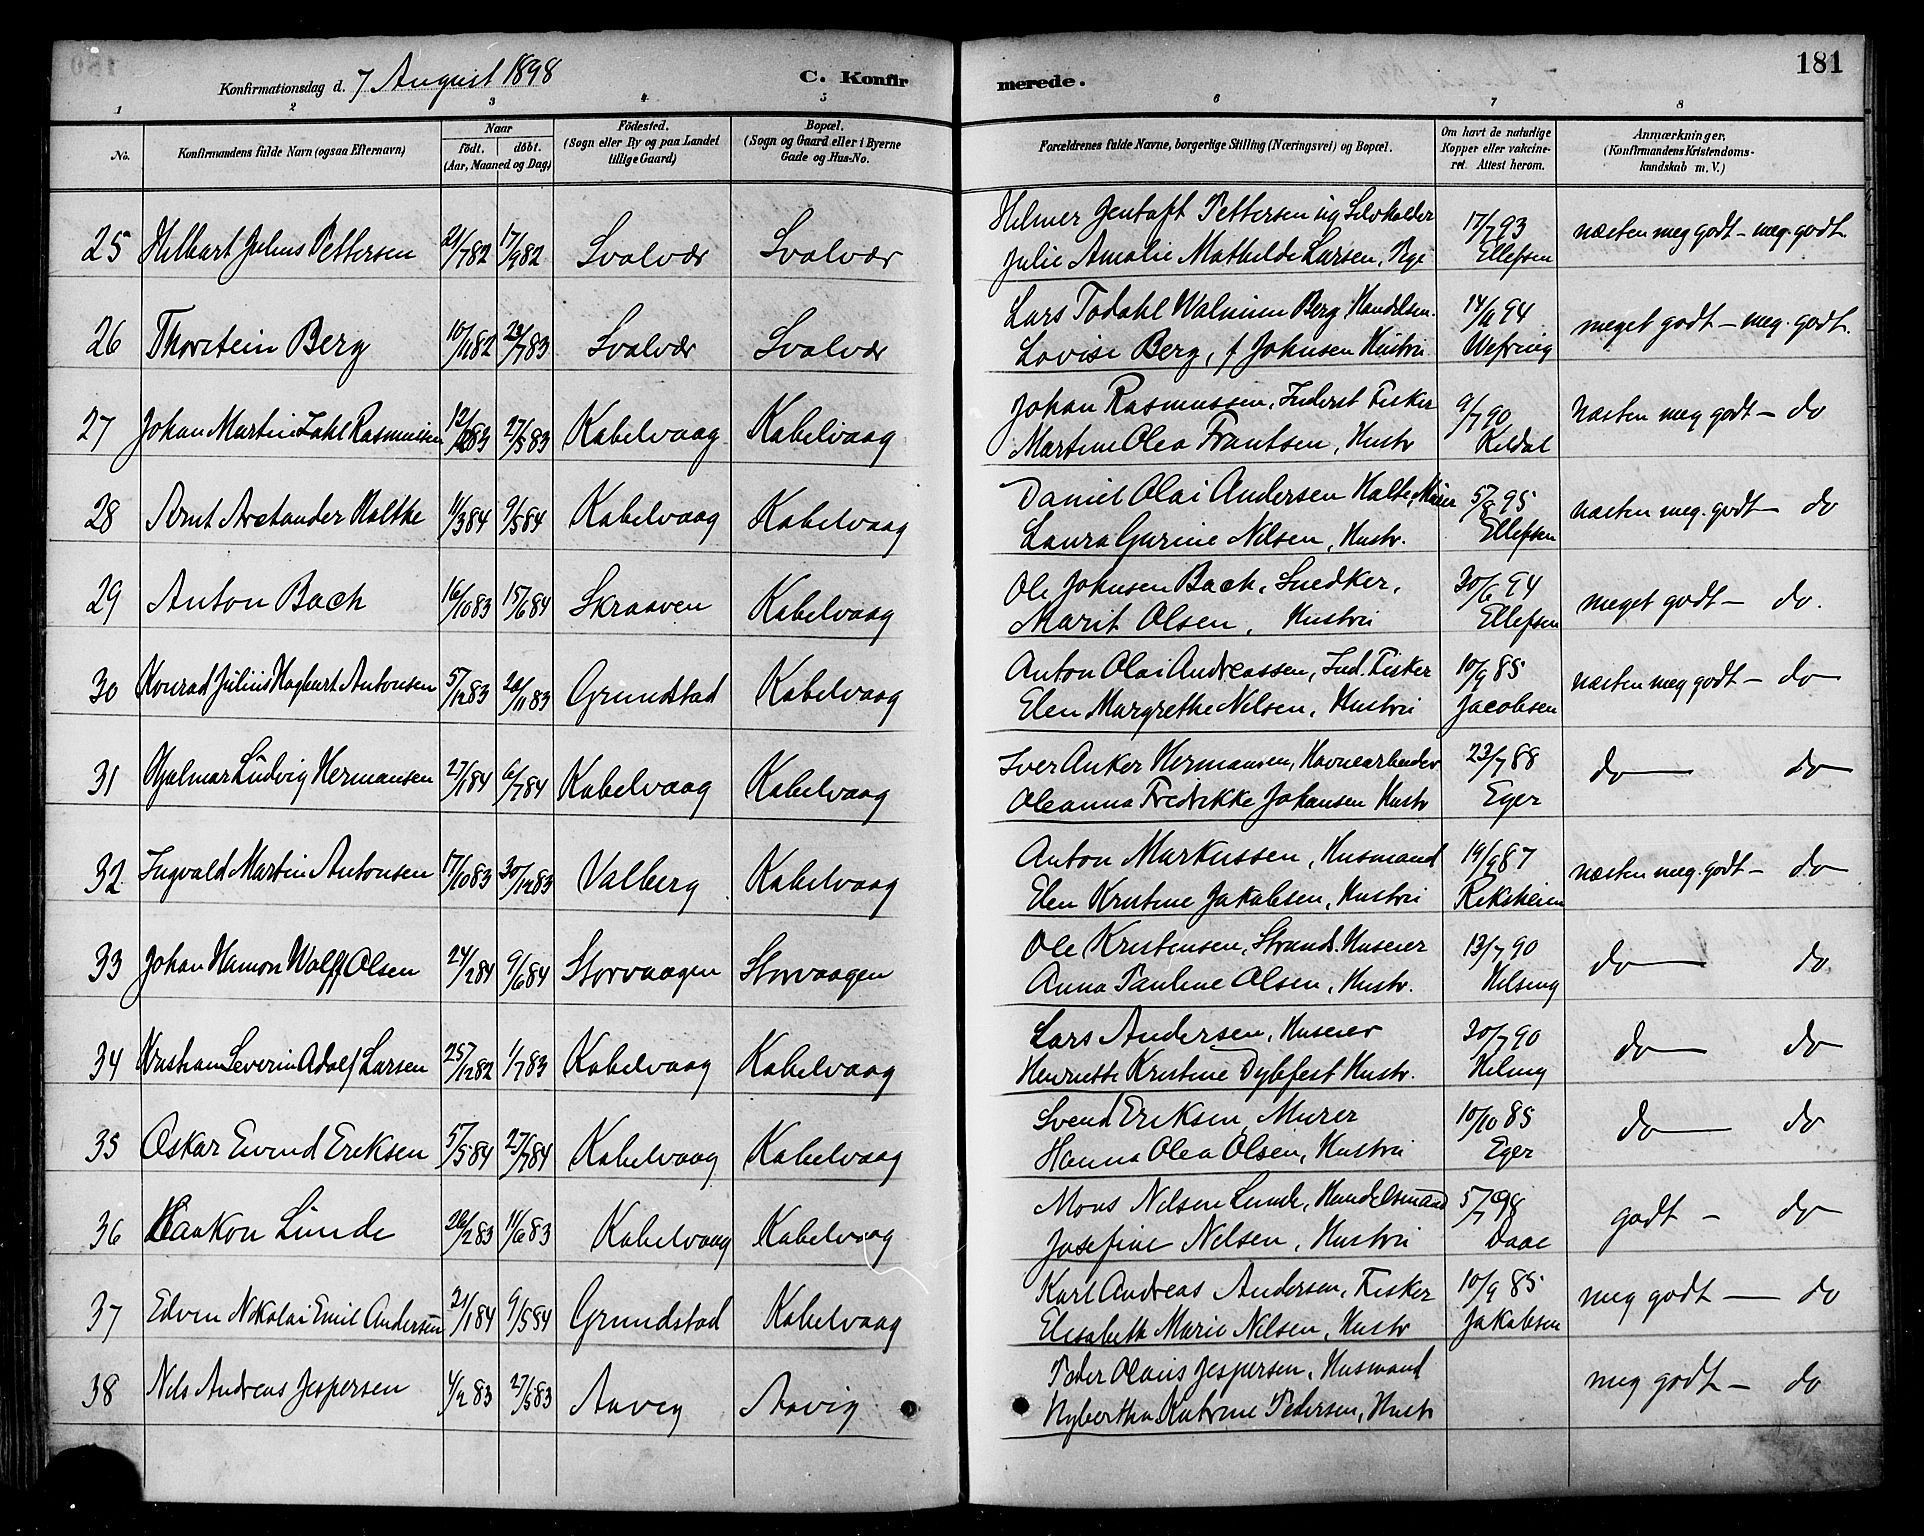 181
Konfirmationsdag d. 7 August 1898 C. Konfirmerede.
1 2 3 4 5 6 7 8
No.
Konfirmandens fulde Navn (ogsaa Efternavn)
Naar
født. døbt.
(Aar, Maaned og Dag)
Fødested.
(Sogn eller By og paa Landet
tillige Gaard)
Bopæl.
(Sogn og Gaard eller i Byerne
Gade og Hus-No.
Forældrenes fulde Navne, borgerlige Stilling (Næringsvei) og Bopæl.
Om havt de naturlige
Kopper eller vakcine-
ret. Attest herom.
Anmærkninger.
(Konfirmandens Kristendoms-
kundskab m. V.)
25 Hilbart Julius Pettersen 21/782 17/982 Svolvær Svolvær
Helmer Jentoft Pettersen ug Selvholder 17/793
Julie Amalie Mathilde Larsen, Pige Ellefsen
næsten meg godt - meg. godt.
26 Thorstein Berg 10/1182 22/783 Svolvær Svolvær
Lars Todahl Berg Handelsm. 14/994
Lovise Berg, f Johnsen Hustru Wefring
meget godt - meg. godt.
27 Johan Martin Zahl Rasmussen 12/283 27/583 Kabelvaag Kabelvaag
Johan Rasmussen, Inderst Fisker 9/790
Martine Olea Frantsen, Hustr Kildal
næsten meg godt - do
28 Arnt Holthe 11/384 9/584 Kabelvaag Kabelvaag
Daniel Olai Andersen Holte, Murer 5/895
Laura Gurine Nilsen, Hustr. Ellefsen
næsten meg. godt - do
29 Anton Bach 16/1083 15/684 Skraaven Kabelvaag
Ole Johnsen Bach, Snedker, 30/694
Marit Olsen, Hustru Ellefsen
meget godt - do.
30 Konrad Julius Hagbart Antonsen 5/1283 Grundstad Kabelvaag
Anton Olai Andreassen, Ind. Fisker 10/985
Elen Margrethe Nilsen, Hustru Jacobsen
næsten meg godt - do
31 Hjalmar Ludvig Hermansen 27/184 6/784 Kabelvaag Kabelvaag
Iver Anker Hermansen, Havnearbeider 23/788
Oleanna Fredrikke Johansen Hustr Eger
do do
32 Ingvald Martin Antonsen 17/1083 30/1283 Valberg Kabelvaag
Anton Markussen, Husmand 14/987
Elen Kristine Jakobsen, Hustru Rekstheim
næsten meg. godt - do
33 Johan Hamon Wolff Olsen 24/284 9/684 Storvaagen Storvaagen
Ole Kristensen, Strands. Huseier 13/790
Anna Pauline Olsen, Hustr. Helsing
do do
34 Kristian Severin Adolf Larsen 25/1282 1/783 Kabelvaag Kabelvaag
Lars Andersen, Huseier 30/790
Henriette Kristine Dybfest Hustr. Helsing
do do
35 Oskar Eivind Eriksen 5/584 27/784 Kabelvaag Kabelvaag
Svend Eriksen, Murer 10/1085
Hanna Olea Olsen, Hustru Eger
do do
36 Haakon Lunde 26/283 11/683 Kabelvaag Kabelvaag
Mons Nilsen Lunde, Handelsmand 5/798
Josefine Nilsen, Hustru Daae
godt - do
37 Edvin Nikolai Emil Andersen 21/184 9/584 Grundstad Kabelvaag
Karl Andreas Andersen, Fisker 10/985
Elisabeth Marie Nilsen, Hustr Jakobsen
meg godt - do
38 Nils Andreas Jespersen 4/283 27/583 Aavig Aavig
Peder Olaus Jespersen, Husmand
Nybertha Katrine Pedersen, Hustr
meg godt - do